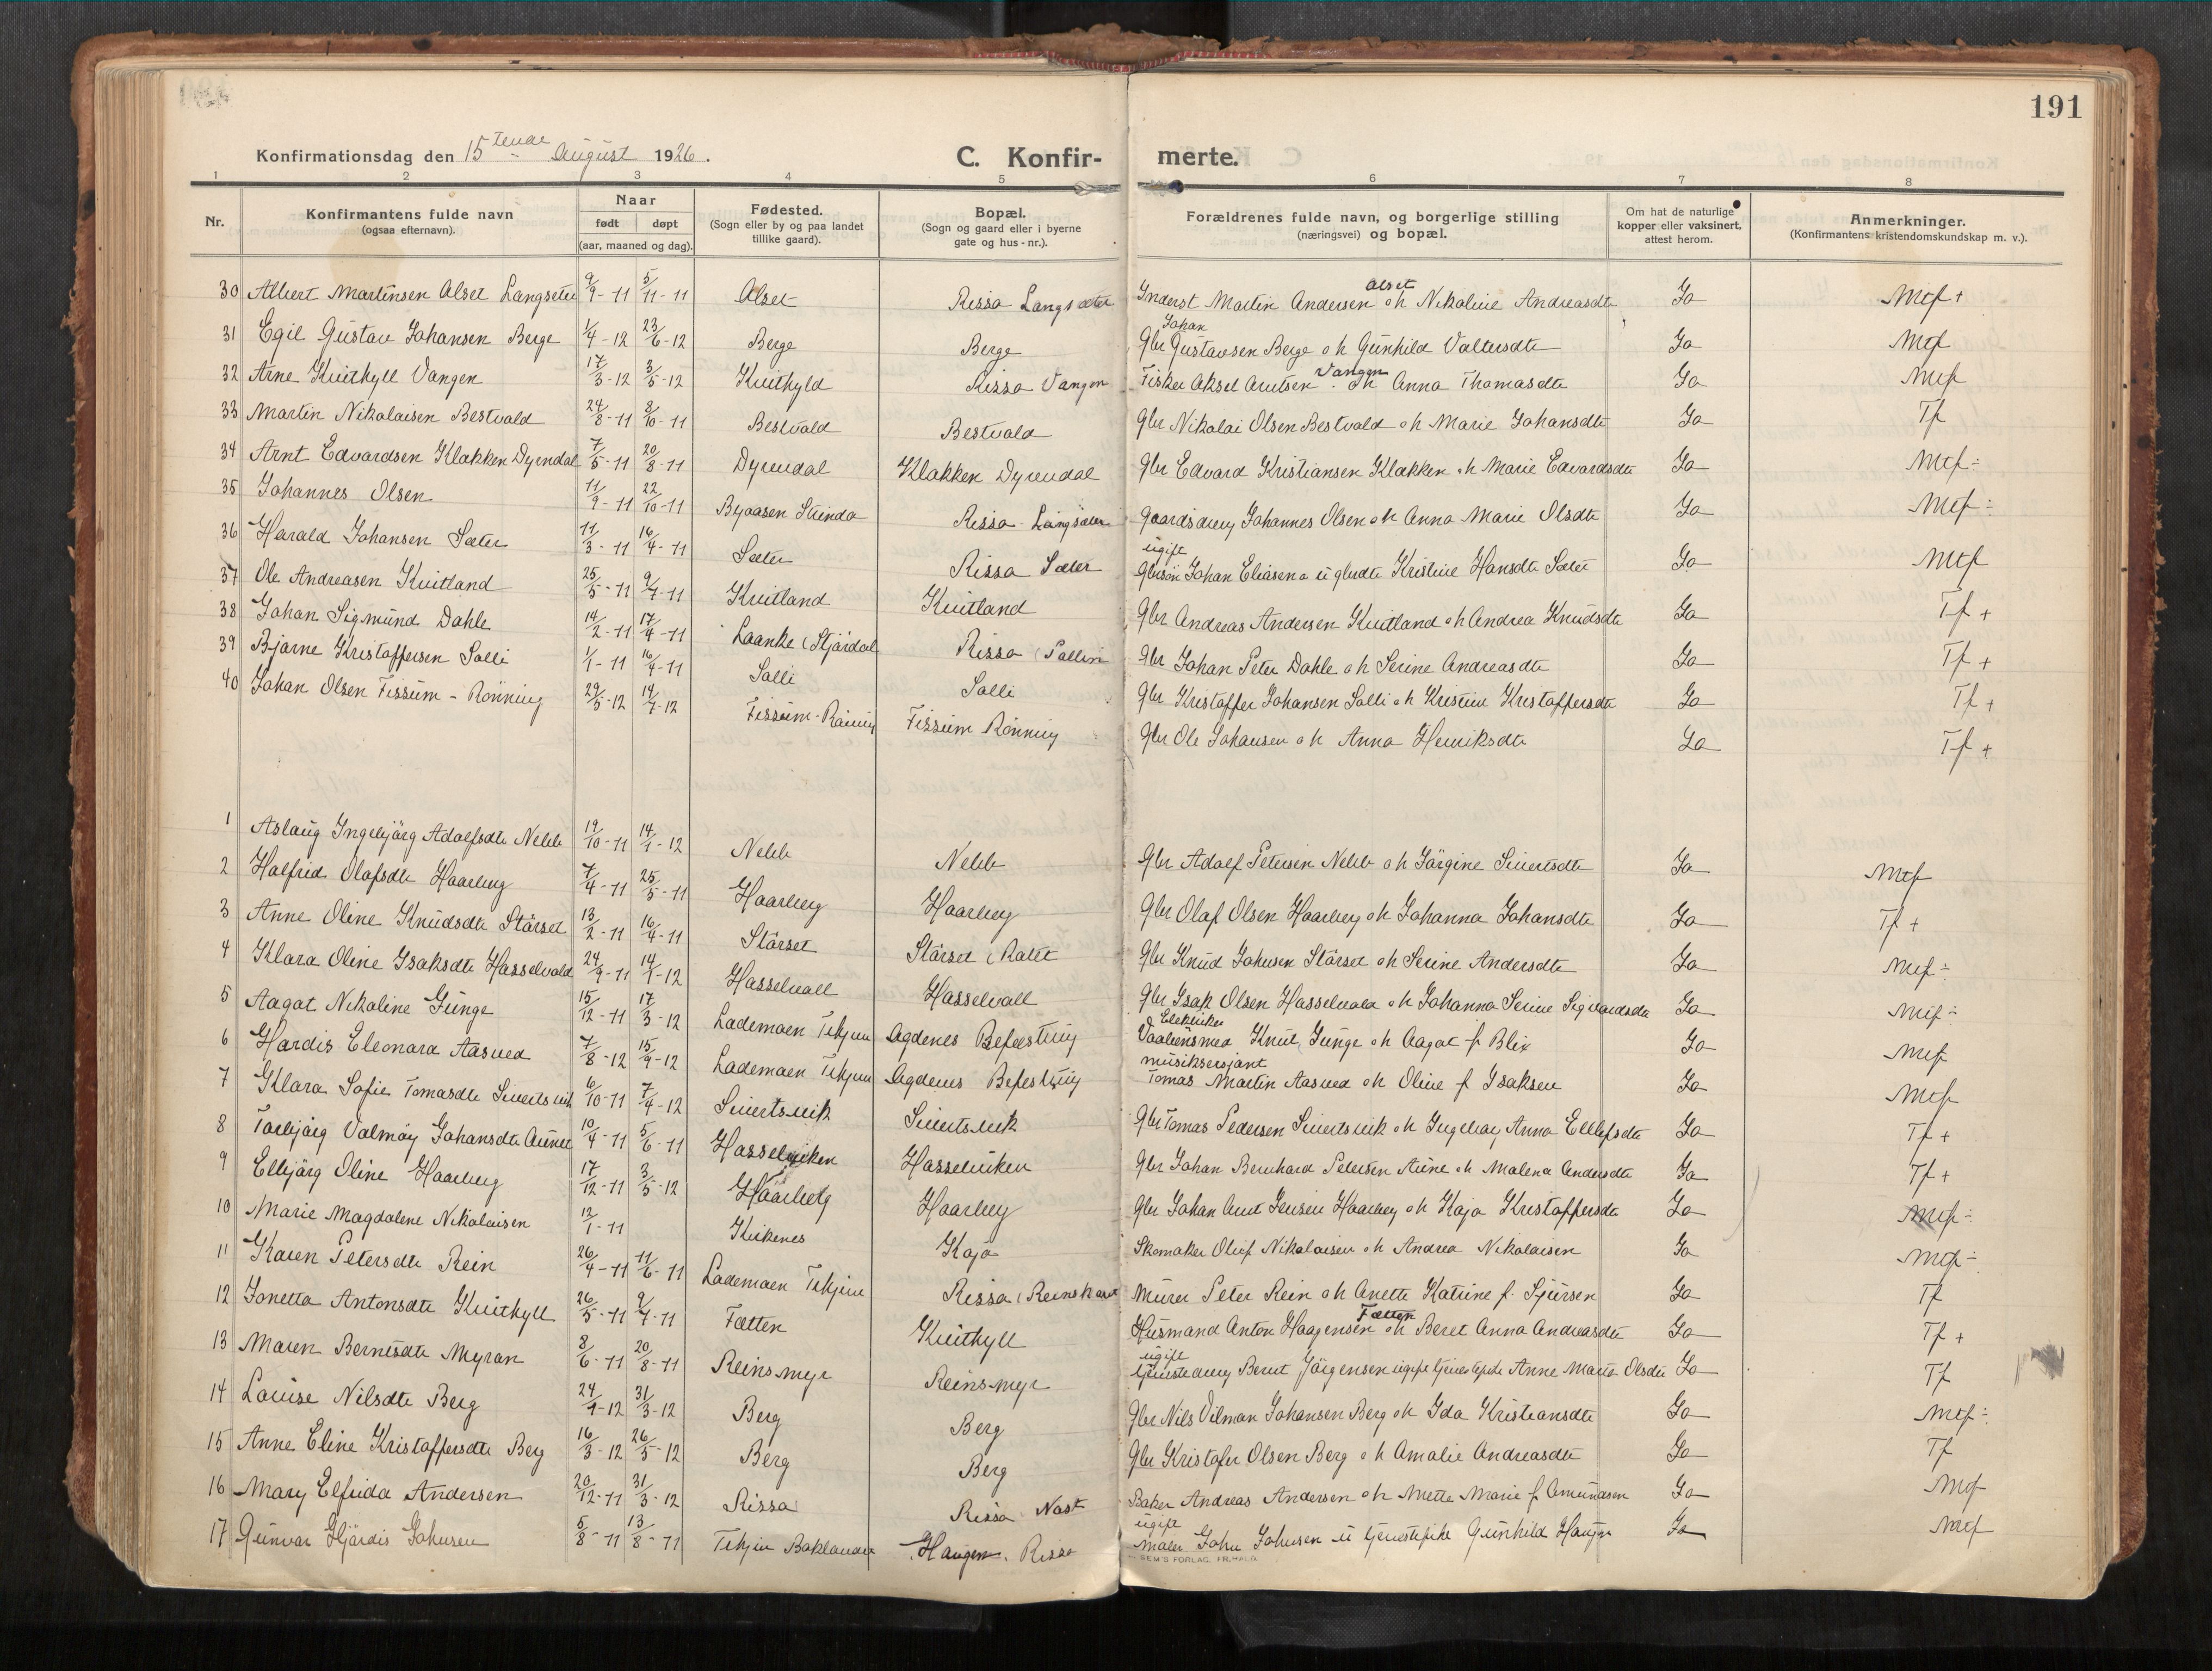 191
Konfirmationsdag den 15 tende August 1926.
C. Konfir-
merte.
1 2 3 4 5 6 7 8
Nr.
Konfirmantens fulde navn
(ogsaa efternavn).
Naar
født døpt
(aar, maaned og dag).
Fødested.
(Sogn eller by og paa landet
tillike gaard).
Bopæl.
(Sogn og gaard eller i byerne
gate og hus-nr.).
Forældrenes fulde navn, og borgerlige stilling
(næringsvei) og bopæl.
Om hat de naturlige
kopper eller vaksinert,
attest herom.
Anmerkninger.
(Konfirmantens kristendomskundskap m. v.).
30 Albert Martinsen Alset Langseter 9/9-11 5/11-11 Alset Rissa Langsæter Inderst Martin Andersen Alset o h Nikoline Andreasdtr Ja Mtf +
31 Egil Gustav Johansen Berge 1/4-12 23/6-12 Berge Berge Gbr Johan Gustavsen Berge o h Gunhild Valtersdtr Ja Mtf
32 Arne Kvithyll Vangen 17/3-12 3/5-12 Kvithyld Rissa Vangen Fisker Aksel Arntsen Vangen o h Anna Thomasdtr Ja Mtf
33 Martin Nikolaisen Bestvald 24/8-11 8/10-11 Bestvald Bestvald Gbr Nikolai Olsen Bestvald o h Marie Johansdtr Ja Tf
34 Arnt Edvardsen Klakken Dyrendal 7/5-11 20/8-11 Dyrendal Klakken Dyrendal Gbr Edvard Kristiansen Klakken o h Marie Edvardsdtr Ja Mtf ÷
35 Johannes Olsen 11/9-11 22/10-11 Byaasen Strinda Rissa Langsæter Gaardsdreng Johannes Olsen o h Anna Marie Olsdtr Ja Mtf ÷
36 Harald Johansen Sæter 11/3-11 16/4-11 Sæter Rissa Sæter ugift Gbrsøn Johan Eliasen o u gbrdtr Kristine Hansdtr Sæter Ja Mtf
37 Ole Andreasen Kvitland 25/5-11 9/7-11 Kvitland Kvitland Gbr Andreas Andersen Kvitland o h Andrea Knudsdtr Ja Tf +
38 Johan Sigmund Dahle 14/2-11 17/4-11 Laanke (Stjørdal Rissa (Sallin Gbr Johan Peter Dahle o h Serine Andreasdtr Ja Tf +
39 Bjarne Kristoffersen Solli 1/1-11 16/4-11 Solli Solli Gbr Kristoffer Johansen Solli o h Kristine Kristoffersdtr Ja Tf +
40 Johan Olsen Fissum - Rønning 29/5-12 14/7-12 Fissum-Rønning Fissum Rønning Gbr Ole Johansen o h Anna Henriksdtr Ja Tf +
1 Aslaug Ingebjørg Adolfsdtr Nebb 19/10-11 14/1-12 Nebb Nebb Gbr Adolf Petersen Nebb o h Jørgine Sivertsdtr Ja Mtf
2 Halfrid Olafsdtr Haarberg 7/4-11 25/5-11 Haarberg Haarberg Gbr Olaf Olsen Haarberg o h Johanna Johansdtr Ja Tf +
3 Anne Oline Knudsdtr Størset 13/2-11 16/4-11 Størset Størset (Ratet Gbr Knud Johnsen Størset o h Serine Andersdtr Ja Mtf ÷
4 Klara Oline Isaksdtr Hasselvald 24/9-11 14/1-12 Hasselvall Hasselvall Gbr Isak Olsen Hasselvald o h Johanna Serine Sigvardsdtr Ja Mtf ÷
5 Aagot Nikoline Junge 15/12-11 17/3-12 Lademoen Trhjem Agdenes Befæstning Elektriker Vaabensmed Knut Junge o h Aagot f Blix Ja Mtf
6 Hardis Eleonora Aasved 7/8-12 15/9-12 Lademoen Trhjem Agdenes Befestning musiksersjant Tomas Martin Aasved o h Oline f Isaksen Ja Mtf
7 Klara Sofie Tomasdtr Sivertsvik 6/10-11 7/4-12 Sivertsvik Sivertsvik Gbr Tomas Pedersen Sivertsvik o h Ingeborg Anna Ellefsdtr Ja Tf +
8 Torbjørg Valmøy Johansdtr Aune 10/4-11 5/6-11 Hasselviken Hasselviken Gbr Johan Bernhard Petersen Aune o h Malena Andersdtr Ja Tf +
9 Elbjørg Oline Haarberg 17/12-11 3/5-12 Haarberg Haarberg Gbr Johan Arnt Jensen Haarberg o h Kaja Kristoffersdtr Ja Mtf ÷
10 Marie Magdalene Nikolaisen 12/1-11 Kirkenes Kaja Skomaker Oluf Nikolaisen o h Andrea Nikolaisen Ja Mtf ÷
11 Karen Petersdtr Rein 26/4-11 11/6-11 Lademoen Trhjem Rissa (Reinskaret Murer Peter Rein o h Anette Katrine f. Sjursen Ja Tf
12 Jonetta Antonsdtr Kvithyll 26/5-11 9/7-11 Fætten Kvithyll Husmand Anton Haagensen Fætten o h Beret Anna Andreasdtr Ja Tf +
13 Maren Berntsdtr Myran 8/6-11 20/8-11 Reinsmyr Reinsmyr ugift tjenestedreng Bernt Jørgensen ugift tjenestepike Anne Marta Olsdtr Ja Tf
14 Louise Nilsdtr Berg 24/1-12 31/3-12 Berg Berg Gbr Nils Vilman Johansen Berg o h Ida Kristiansdtr Ja Mtf ÷
15 Anne Eline Kristoffersdtr Berg 16/3-12 26/5-12 Berg Berg Gbr Kristofer Olsen Berg o h Amalie Andreasdtr Ja Tf
16 Mary Elfrida Andersen 20/12-11 31/3-12 Rissa Rissa Nøst Baker Andreas Andersen o h Mette Marie f Amundsen Ja Mtf
17 Gunvor Hjørdis Johnsen 5/8-11 13/8-11 Trhjem Baklandet Haugen. Rissa ugift maler John Johnsen u tjenestepike Gunhild Haugen Ja Mtf
SEM'S FORLAG, FR.HALD.